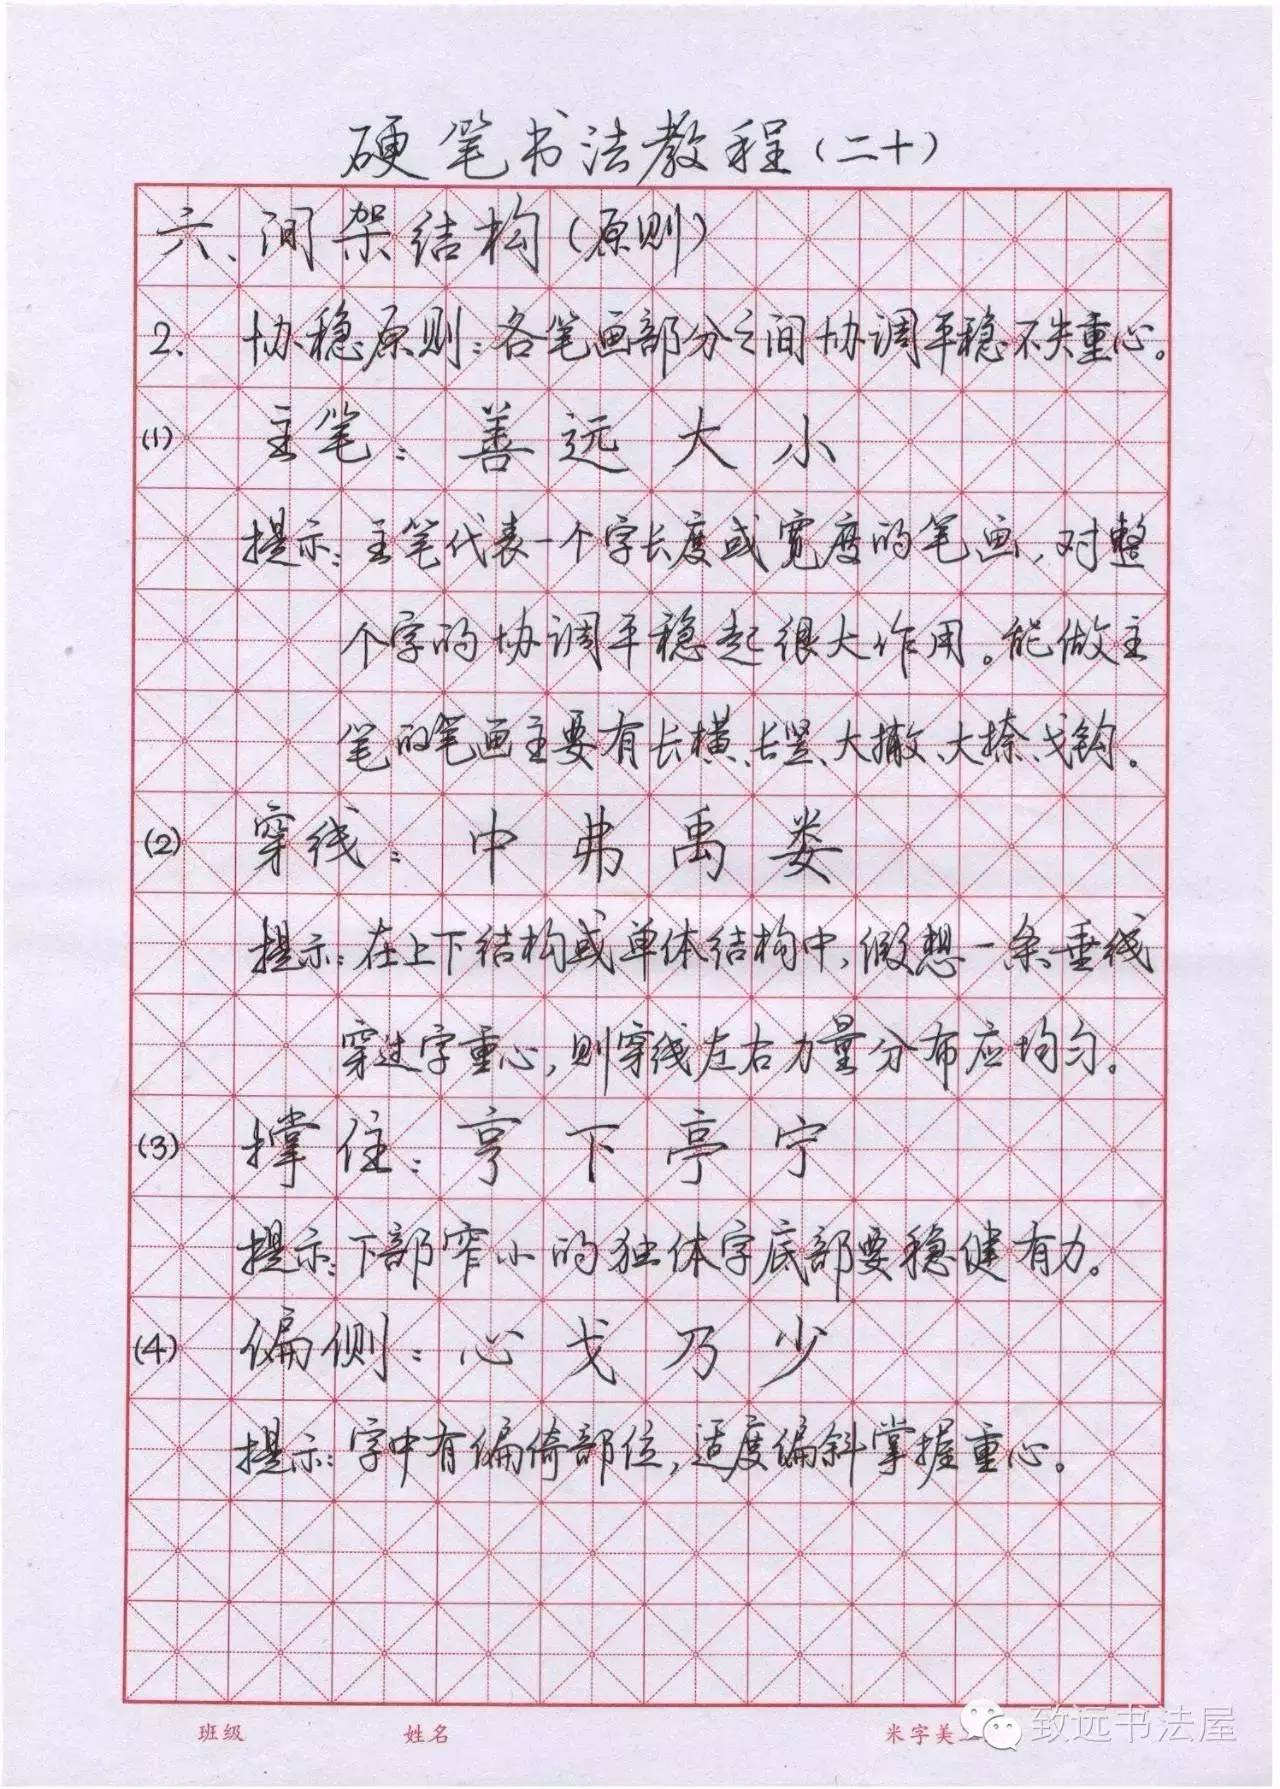 硬笔书法教程(二十)
六、间架结构(原则)
2. 协稳原则:各笔画部分之间协调平稳不失重心。
(1) 主笔:善远大小
提示:主笔代表一个字长度或宽度的笔画,对整
个字的协调平稳起很大作用。能做主
笔的笔画主要有长横、长竖、大撇、大捺、戈钩。
(2) 穿线:中弗禹娄
提示:在上下结构或单体结构中,假想一条垂线
穿过字重心,则穿线左右力量分布应均匀。
(3) 撑住:亨下亭宁
提示:下部窄小的独体字底部要稳健有力。
(4) 偏侧:心戈乃少
提示:字中有偏倚部位,适度偏斜掌握重心。
班级 姓名 米字美
致远书法屋